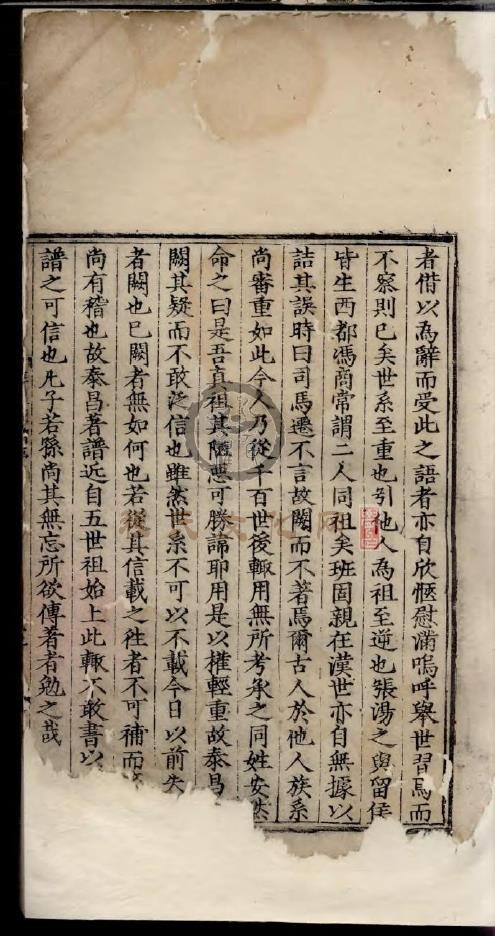 者借以為辭而受此之語者亦自欣愜慰滿嗚呼舉世習焉而
不察則已矣世系至重也引他人為祖至逆也張湯之與留侯
皆生西都馮商常謂二人同祖矣班固親在漢世亦自無據以
詰其誤時曰司馬遷不言故闕而不著焉爾古人於他人族系
尚審重如此今人乃從千百世後輙用無所考承之同姓安然
命之曰是吾真祖其陋悪可勝諦耶用是以權輕重故泰昌
闕其疑而不敢泛信也雖然世系不可以不載今日以前失
者闕也已闕者無如何也若從其信載之徃者不可補而
尚有稽也故泰昌著譜近自五世祖始上此輙不敢書以
譜之可信也凢子若孫尚其無忘所欲傳著者勉之哉